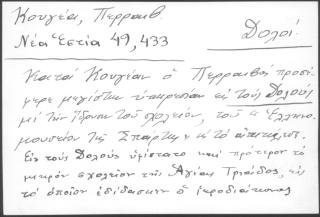 Κουγέα, Περραιβ.
Δολοί.
Νέα Ἑστία 49, 433
Κατὰ Κουγέαν ὁ Περραιβὸς προσέ-
φερε μεγίστην ὑπηρεσίαν εἰς τοὺς Δολοὺς
μὲ τὴν ἵδρυσιν τοῦ σχολείου, τοῦ Ἑλληνο-
μουσείου τῆς Σπάρτης
Εἰς τοὺς Δολοὺς ὑφίστατο καὶ πρότερον τὸ
μικρὸν σχολεῖον τῆς Ἁγίας Τριάδος, εἰς
τὸ ὁποῖον ἐδίδασκεν ὁ ἱεροδιάκονος